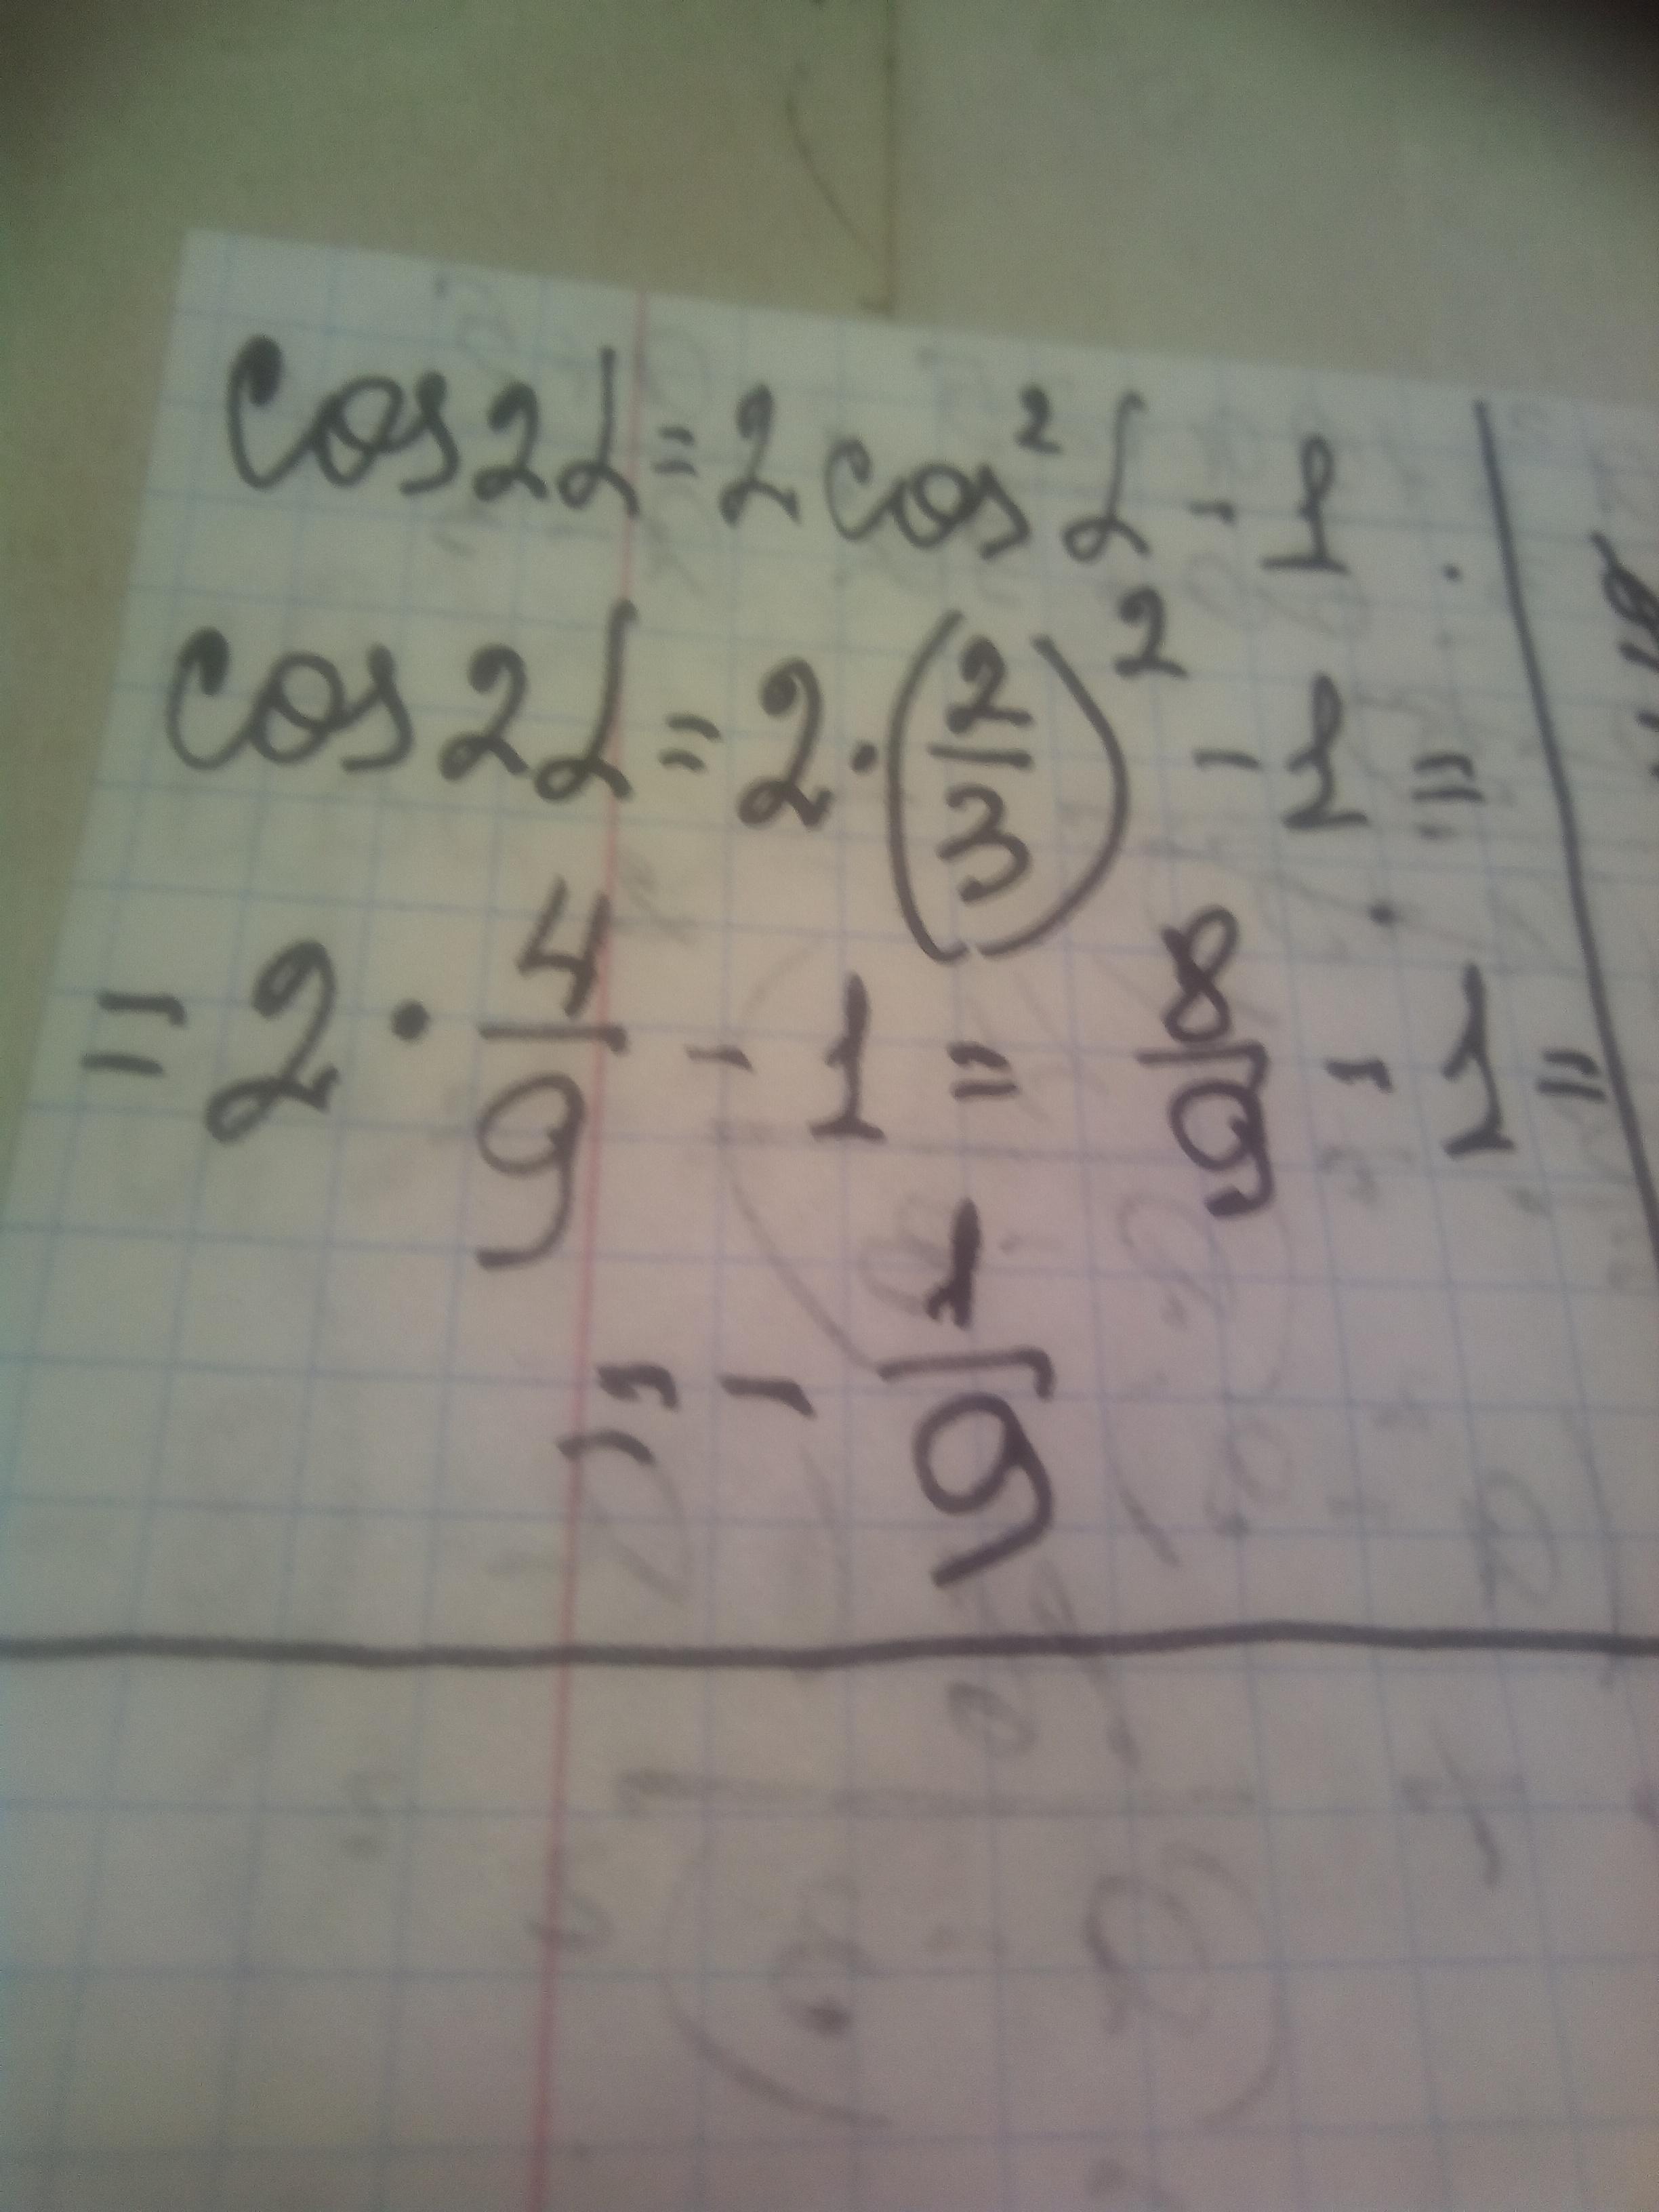 cos2α=2cos²α-1
cos2α=2·(2/3)²-1=
=2·4/9-1=8/9-1=
=-1/9